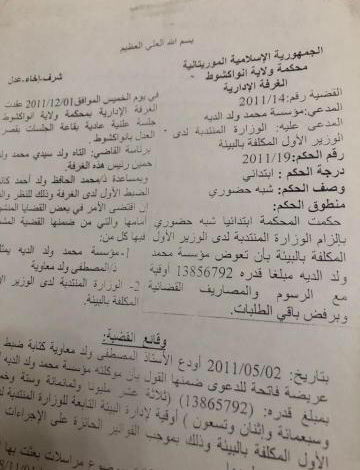 بسم الله العلي العظيم
الجمهورية الإسلامية الموريتانية
محكمة ولاية انواكشوط
الغرفة الإدارية
القضية رقم: 2011/14
المدعي: مؤسسة محمد ولد الديه
المدعى عليه: الوزارة المنتدبة لدى
الوزير الأول المكلفة بالبيئة
رقم الحكم: 2011/19
درجة الحكم: ابتدائي
وصف الحكم: شبه حضوري
منطوق الحكم:
حكمت المحكمة ابتدائيا شبه حضوري
بإلزام الوزارة المنتدبة لدى الوزير الأول
المكلفة بالبيئة بأن تعوض مؤسسة محمد
ولد الديه مبلغا قدره 13856792 أوقية
مع الرسوم والمصاريف القضائية
وبرفض باقي الطلبات.
شرف-إخاء-عدل
في يوم الخميس الموافق 2011/12/01 عقدت
الغرفة الإدارية بمحكمة ولاية انواكشوط
جلسة علنية عادية بقاعة الجلسات بقصر
العدل بانواكشوط
برئاسة القاضي: التاه ولد سيدي محمد ولد
حمين رئيس هذه الغرفة
وبمساعدة ذ/محمد الحافظ ولد أحمد
الضبط الأول لدى الغرفة وذلك للنظر
اقتضى الأمر في بعض القضايا
أمامها والتي من ضمنها القضية
فيها كل من:
1- مؤسسة محمد ولد الديه
ذ/المصطفى ولد معاوية
2- الوزارة المنتدبة لدى الوزير
المكلفة بالبيئة.
وقائع القضية:
بتاريخ: 2011/05/02 أودع الأستاذ المصطفى ولد معاوية كتابة ضبط
عريضة فاتحة للدعوى ضمنها القول بأن موكلته مؤسسة محمد ولد
بمبلغ قدره: (13865792) (ثلاثة عشر مليونا وثمانمائة وستة
وسبعمائة وإثنان وتسعون) أوقية لإدارة البيئة التابعة للوزارة المنتدبة
الأول المكلفة بالبيئة وذلك بموجب الفواتير الحائزة على الإجراءات
مراسلات بعثت بها